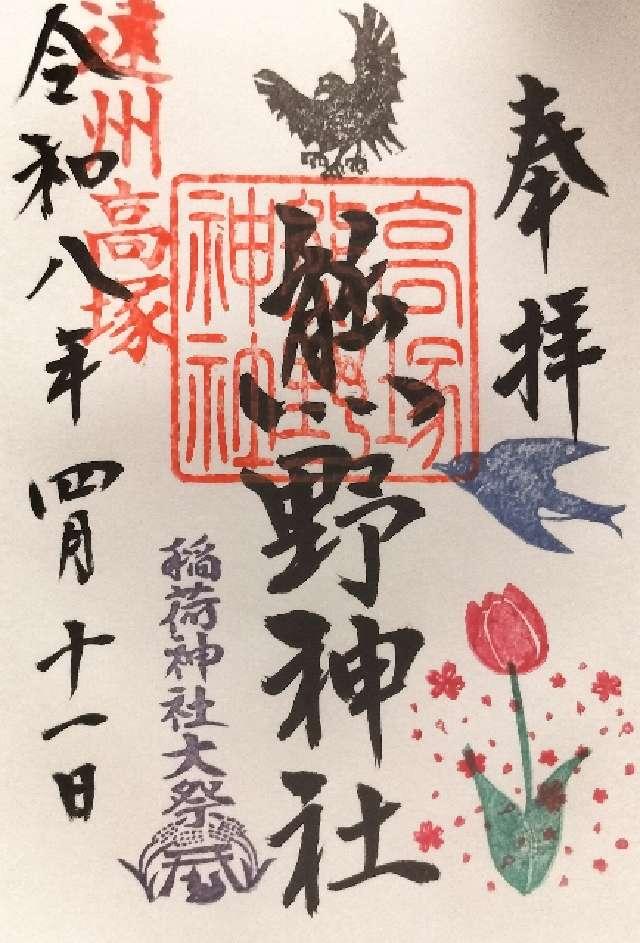 奉拝
高塚
熊野
神社
熊野神社
稲荷神社大祭
遠州高塚
令和八年四月十一日